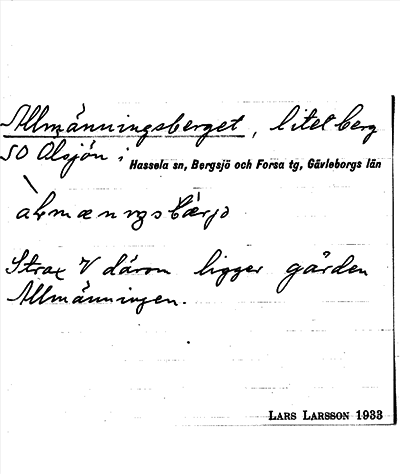 Allmänningsberget, litet berg
SO Älsjön,
Hassela sn, Bergsjö och Forsa tg, Gävleborgs län
Strax V därom ligger gården
Allmänningen.
LARS LARSSON 1933